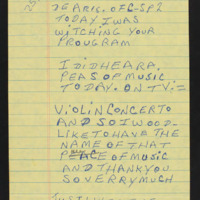 DEARIG. OFC-SP2
TODAY I WAS
WITCHING YOUR
PROUGRAM
I DIDHEARA,
PEAS OF MUSIC
TODAY. ON TVI=
VIOLIN CONCERTO
AND SO I WOOD-
LIKE TO HAVE THE
NAME OF THAT
PEACE OF MUSIC
AND THANKYOU
SOVERRYMUCH